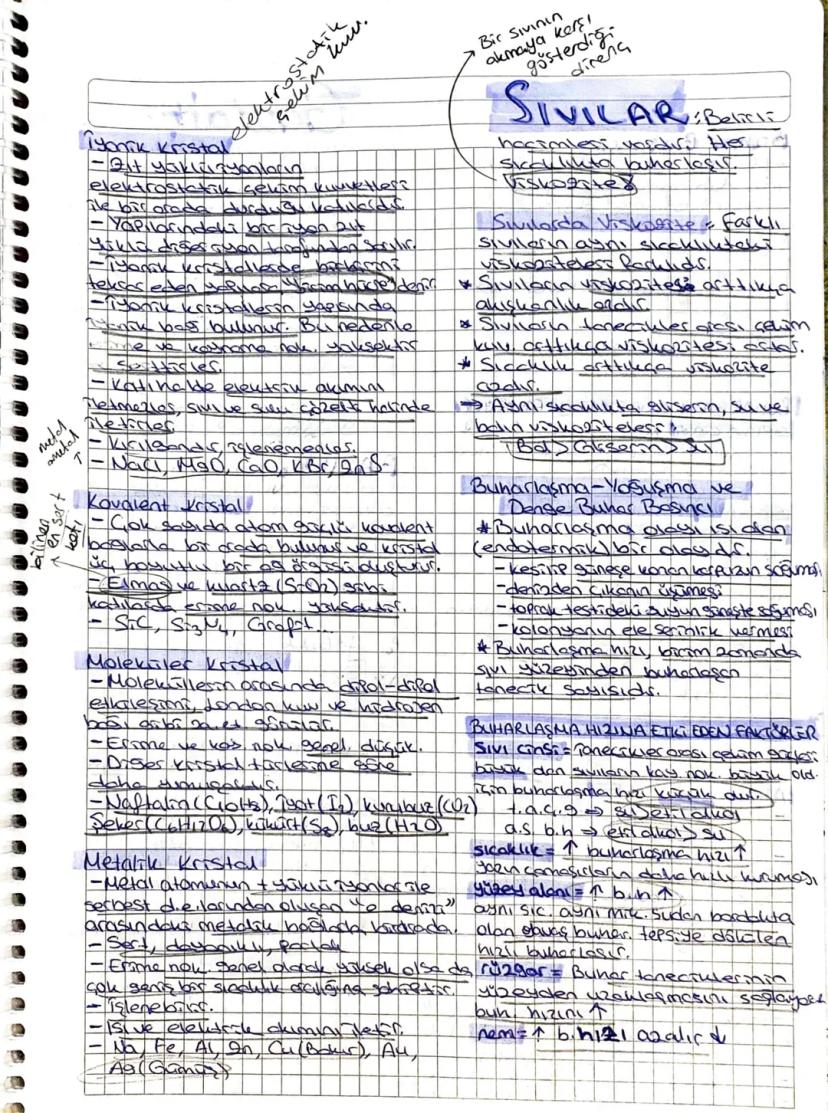 elektrostatik
çekim kuv.
İyonik Kristal
- Zıt yüklü iyonların
elektrostatik çekim kuvvetleri
ile bir arada durduğu katılardır.
- Yapılarındaki bir iyon zıt
yüklü diğer iyon tarafından sarılır.
- İyonik kristallerde birbirini
tekrar eden yapılara "birim hücre" denir.
- İyonik kristallerin yapısında
iyonik bağ bulunur. Bu nedenle
erime ve kaynama nok. yüksektir
Serttirler.
- Katı halde elektrik akımını
iletmezler, sıvı ve sulu çözelti halinde
iletirler
- Kırılgandır, işlenemezler.
- NaCl, MgO, CaO, KBr, ZnS
metal
ametal
↑
Kovalent Kristal
- Çok sayıda atom güçlü kovalent
bağlarla bir arada bulunur ve kristal
üç boyutlu bir ağ örgüsü oluşturur.
- Elmas ve kuartz (SiO2) gibi
katılarda erime nok. yüksektir.
- SiC, Si3N4, Grafit...
bilinen
en sert
katı
Moleküler Kristal
- Moleküllerin arasında dipol-dipol
etkileşimi, London kuv ve hidrojen
bağı gibi zayıf
- Erime ve kay. nok. genel. düşük.
- Diğer kristal türlerine göre
daha yumuşaktır.
- Naftalin (C10H8), İyot (I2), kurubuz (CO2)
Şeker (C6H12O6), kükürt (S8), buz (H2O)
Metalik Kristal
- Metal atomunun + yüklü iyonlar ile
serbest d.e.larından oluşan "e denizi"
arasındaki metalik bağlarla bir arada.
- Sert, dayanıklı, parlak
- Erime nok. genel olarak yüksek olsa da
çok geniş bir sıcaklık aralığına sahiptir.
- İşlenebilir.
- Isı ve elektrik akımını iletir.
- Na, Fe, Al, Zn, Cu (Bakır), Au,
Ag (Gümüş)
Bir sıvının
akmaya karşı
gösterdiği
direnç
SIVILAR : Belirli
hacimleri vardır. Her
sıcaklıkta buharlaşır
Viskozite
Sıvılarda Viskozite = Farklı
sıvıların aynı sıcaklıkteki
viskoziteleri farklıdır.
* Sıvıların viskozitesi arttıkça
akışkanlık azalır.
* Sıvıların tanecikler arası çekim
kuv. arttıkça viskozitesi artar.
* Sıcaklık arttıkça viskozite
azalır.
→ Aynı sıcaklıkta gliserin, su ve
balın viskoziteleri;
Bal > Gliserin > su
Buharlaşma-Yoğuşma ve
Denge Buhar Basıncı
* Buharlaşma olayı ısı alan
(endotermik) bir olaydır.
- kesilip güneşe konan karpuzun soğuması
- denizden çıkanın üşümesi
- toprak testideki suyun güneşte soğuması
- kolonyanın ele serinlik vermesi
* Buharlaşma hızı, birim zamanda
sıvı yüzeyinden buharlaşan
tanecik sayısıdır.
BUHARLAŞMA HIZINA ETKİ EDEN FAKTÖRLER
Sıvı cinsi = Tanecikler arası çekim güçleri
büyük olan sıvıların kay. nok. büyük old.
için buharlaşma hızı küçük olur.
t.a.ç.g ⇒ su > etil alkol
a.s. b.h ⇒ etil alkol > su
sıcaklık = ↑ buharlaşma hızı ↑
yazın çamaşırların daha hızlı kuruması
yüzey alanı = ↑ b.h ↑
aynı sıc. aynı mik. sudan bardakta
olan yavaş buhar. tepsiye dökülen
hızlı buharlaşır.
rüzgar = Buhar taneciklerinin
yüzeyden uzaklaşmasını sağlayarak
buh. hızını ↑
nem = ↑ b.hızı azalır ↓